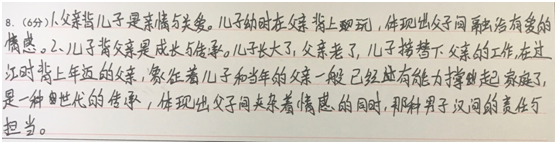 8. (6分) 1、父亲背儿子是亲情与关爱。儿子幼时在父亲背上玩，体现出父子间融洽有爱的
情感。2、儿子背父亲是成长与传承。儿子长大了，父亲老了，儿子接替下父亲的工作，在过
江时背上年迈的父亲，象征着儿子和当年的父亲一般已经有能力撑起家庭了，
是一种世代的传承，体现出父子间夹杂着情感的同时，那种男子汉间的责任与
担当。